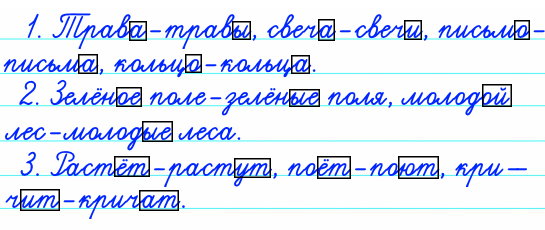 1. Трава-травы, свеча-свечи, письмо-
письма, кольцо-кольца.
2. Зелёное поле-зелёные поля, молодой
лес-молодые леса.
3. Растёт-растут, поёт-поют, кри-
чит-кричат.